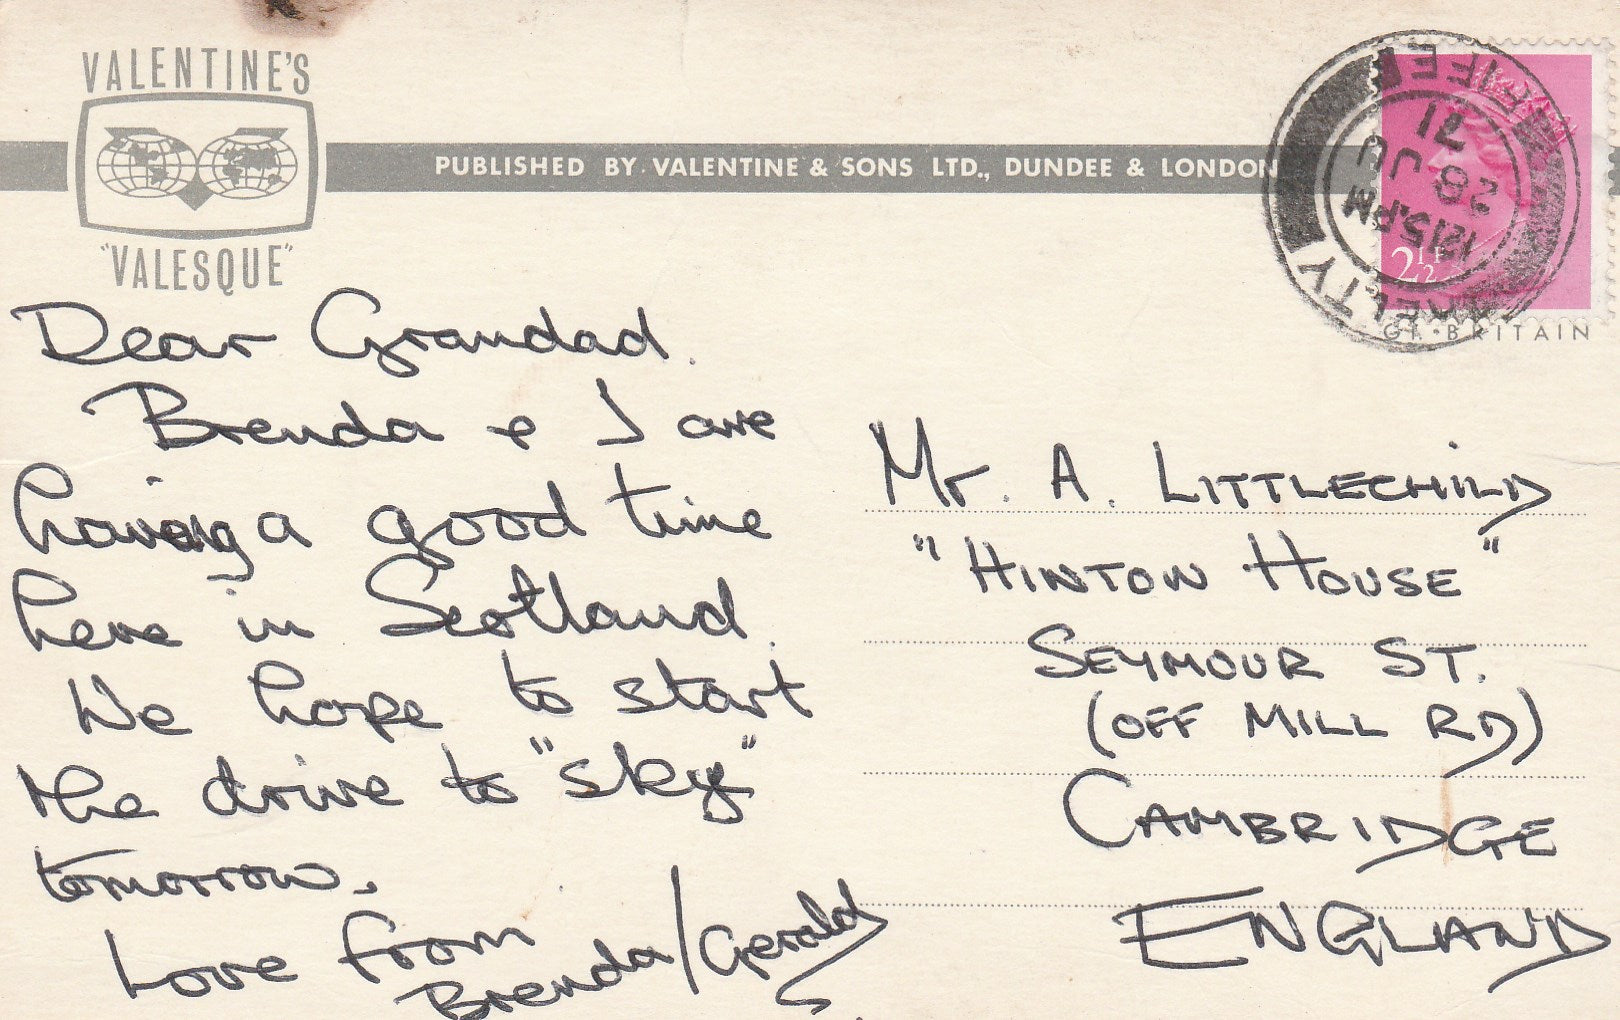 VALENTINE'S
"VALESQUE"
PUBLISHED BY VALENTINE & SONS LTD., DUNDEE & LONDON
KELTY
FIFE
12 15 PM
28 JU
71
2½
GT. BRITAIN
Dear Grandad.
Brenda & I are
having a good time
here in Scotland.
We hope to start
the drive to "sky"
tomorrow.
Love from
Brenda/Gerald
Mr. A. LITTLECHILD
"HINTON HOUSE"
SEYMOUR ST.
(OFF MILL RD)
CAMBRIDGE
ENGLAND